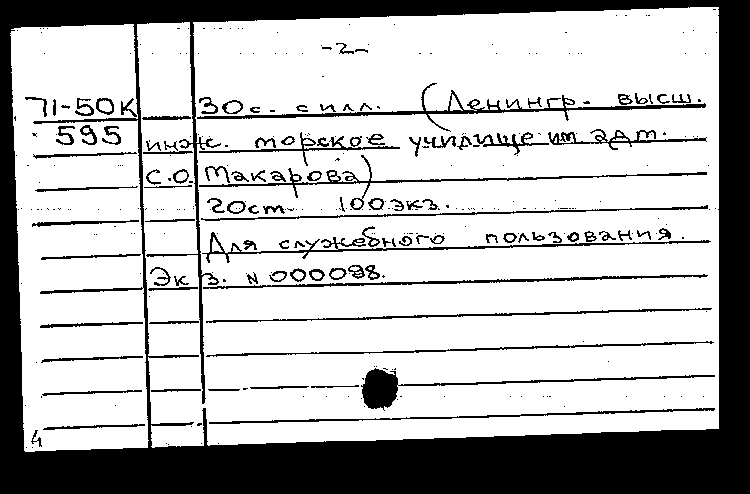 -2-
71-50К 30с. с илл. (Ленингр. высш.
595 инж. морское училище им. адм.
С.О. Макарова)
20см 100экз.
Для служебного пользования.
Экз. N 000098.
4